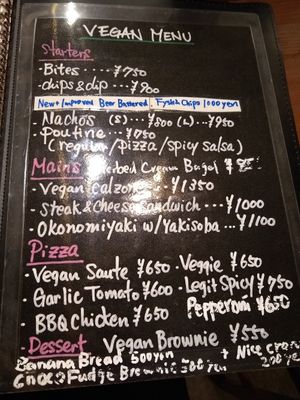 VEGAN MENU
Starters
・Bites ・・・・ ¥750
・chips & dip ・・・ ¥800
New + Improved Beer Battered Fysh & Chips 1000 yen
・Nachos (S) ・・・ ¥500 (L) ・・¥950
・Poutine ・・・ ¥750
(regular / pizza / spicy salsa)
Mains Herbed Cream Bagel
・Vegan Calzone ・・ ¥1350
・Steak & Cheese Sandwich ・・・ ¥1000
・Okonomiyaki w/ Yakisoba ・・・ ¥1100
Pizza
・Vegan Saute ¥650 ・Veggie ¥650
・Garlic Tomato ¥600 ・Legit Spicy ¥750
・BBQ Chicken ¥650 Pepperoni ¥650
・Dessert Vegan Brownie ¥550
Banana Bread 500yen + Nice Cream
Choco Fudge Brownie 500 yen 200 yen